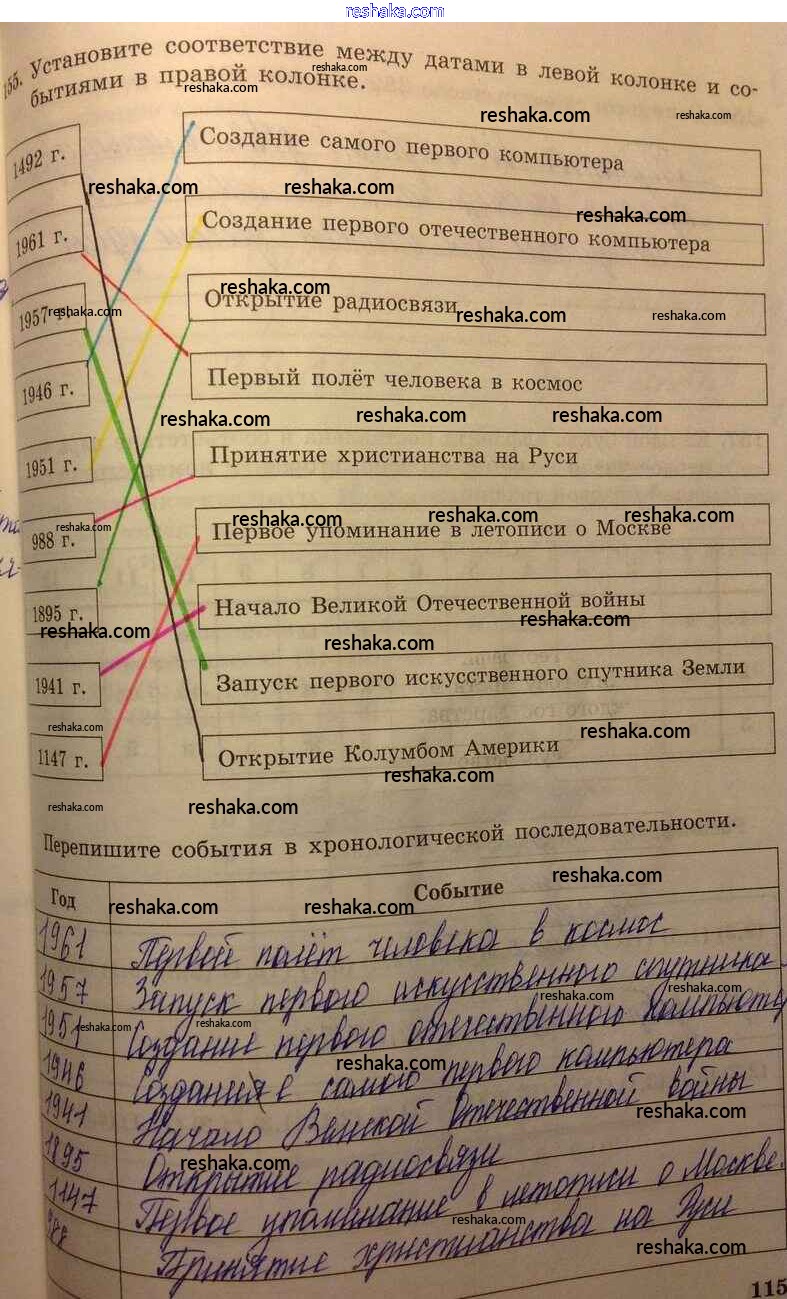 reshaka.com
155. Установите соответствие между датами в левой колонке и со-
бытиями в правой колонке.
reshaka.com
reshaka.com
reshaka.com
reshaka.com
1492 г.
Создание самого первого компьютера
reshaka.com
reshaka.com
reshaka.com
1961 г.
Создание первого отечественного компьютера
reshaka.com
1957 г.
Открытие радиосвязи
reshaka.com
reshaka.com
reshaka.com
1946 г.
Первый полёт человека в космос
reshaka.com
reshaka.com
reshaka.com
1951 г.
Принятие христианства на Руси
reshaka.com
reshaka.com
reshaka.com
reshaka.com
988 г.
Первое упоминание в летописи о Москве
1895 г.
Начало Великой Отечественной войны
reshaka.com
reshaka.com
reshaka.com
1941 г.
Запуск первого искусственного спутника Земли
reshaka.com
reshaka.com
1147 г.
Открытие Колумбом Америки
reshaka.com
reshaka.com
reshaka.com
Перепишите события в хронологической последовательности.
reshaka.com
Год Событие
reshaka.com
reshaka.com
1961 Первый полёт человека в космос
1957 Запуск первого искусственного спутника
reshaka.com
reshaka.com
reshaka.com
1951 Создание первого отечественного компьюте
reshaka.com
1946 Создание самого первого компьютера
reshaka.com
1941 Начало Великой Отечественной войны
reshaka.com
1895 Открытие радиосвязи
1147 Первое упоминание в летописи о Москве.
reshaka.com
988 Принятие христианства на Руси
reshaka.com
115